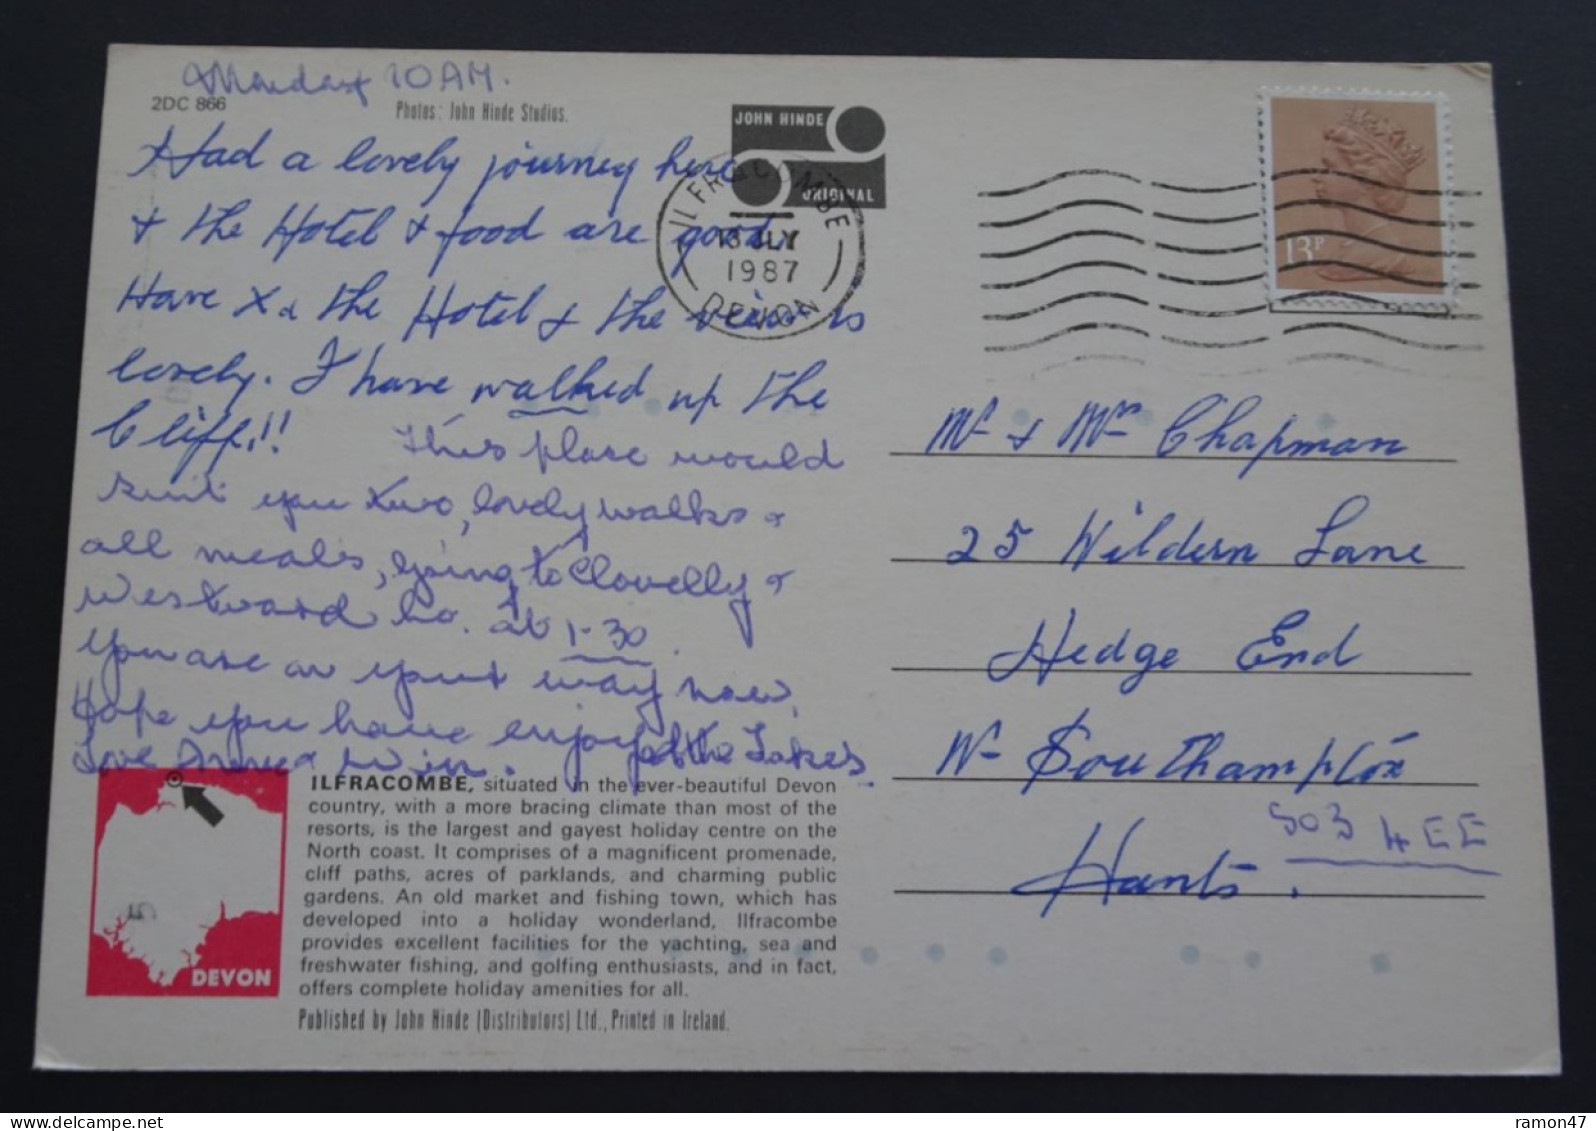 Monday 10 AM.
2DC 866
Photos: John Hinde Studios.
JOHN HINDE
ORIGINAL
Had a lovely journey here
& the Hotel & food are good.
Have Xd the Hotel & the view is
lovely. I have walked up the
Cliff!!
This place would
suit you two, lovely walks &
all meals, going to Clovelly &
Westward ho. at 1-30.
You are on your way now,
Hope you have enjoyed the Lakes.
Love & Win.
ILFRACOMBE
JLY
1987
DEVON
13P
Mr & Mrs Chapman
25 Wildern Lane
Hedge End
Nr Southampton
Hants.
SO3 4EE
DEVON
ILFRACOMBE, situated in the ever-beautiful Devon
country, with a more bracing climate than most of the
resorts, is the largest and gayest holiday centre on the
North coast. It comprises of a magnificent promenade,
cliff paths, acres of parklands, and charming public
gardens. An old market and fishing town, which has
developed into a holiday wonderland, Ilfracombe
provides excellent facilities for the yachting, sea and
freshwater fishing, and golfing enthusiasts, and in fact,
offers complete holiday amenities for all.
Published by John Hinde (Distributors) Ltd., Printed in Ireland.
ramon47